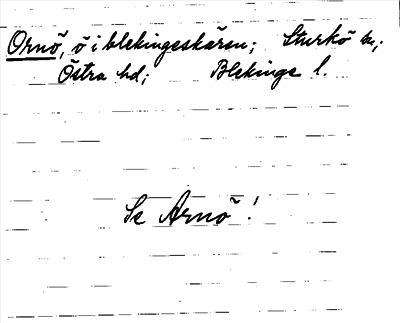 Ornö, ö i blekingeskären; Sturkö sn;
Östra hd; Blekinge l.
Se Arnö!